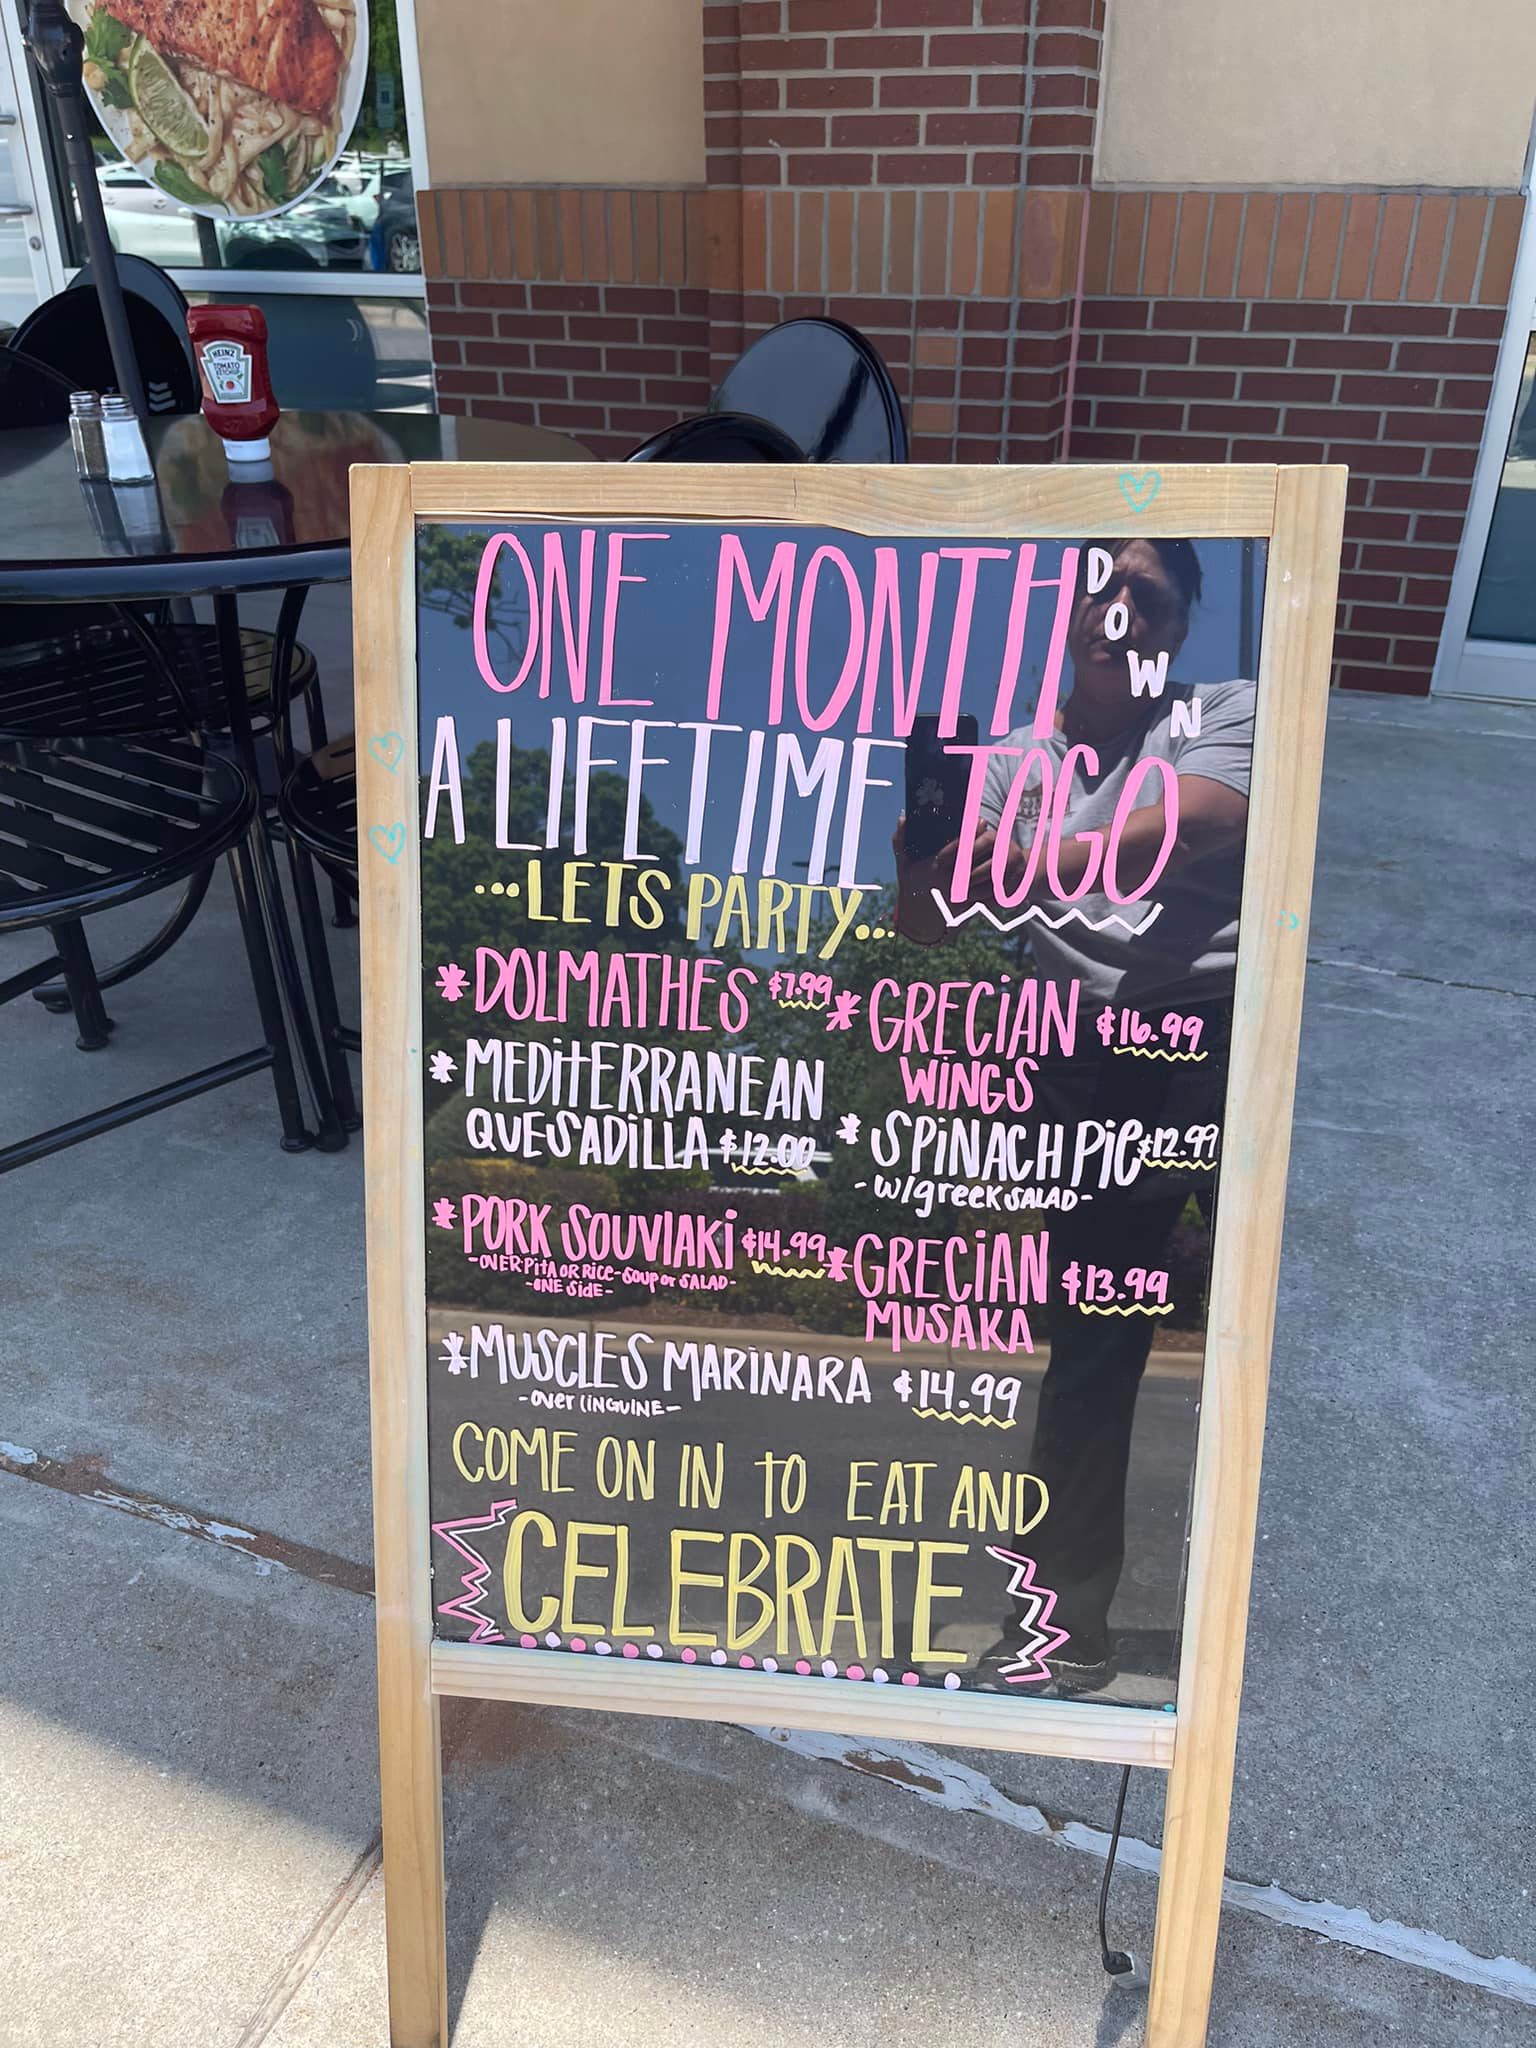 HEINZ
TOMATO
KETCHUP
ONE MONTH DOWN
A LIFETIME TOGO
...LETS PARTY...
*DOLMATHES $7.99
*MEDITERRANEAN
QUESADILLA $12.00
*PORK SOUVIAKI $14.99
-OVER PITA OR RICE-SOUP or SALAD-
-ONE SIDE-
*GRECIAN $16.99
WINGS
*SPINACH PIE $12.99
-w/greek SALAD-
*GRECIAN $13.99
MUSAKA
*MUSCLES MARINARA $14.99
-over LINGUINE-
COME ON IN TO EAT AND
CELEBRATE